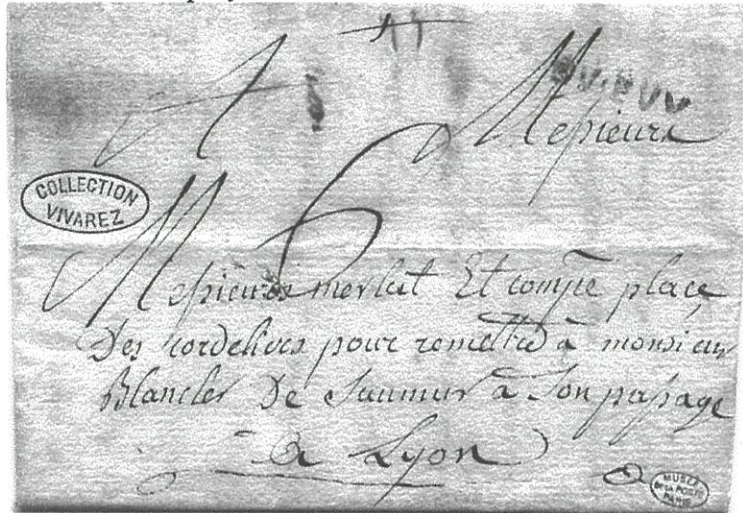 A Messieurs
COLLECTION
VIVAREZ
6
Messieurs merlat Et compie place
Des Cordeliers pour remettre à monsieur
Blancler De Saumur à Son passage
A Lyon
MUSÉE
DE LA POSTE
PARIS